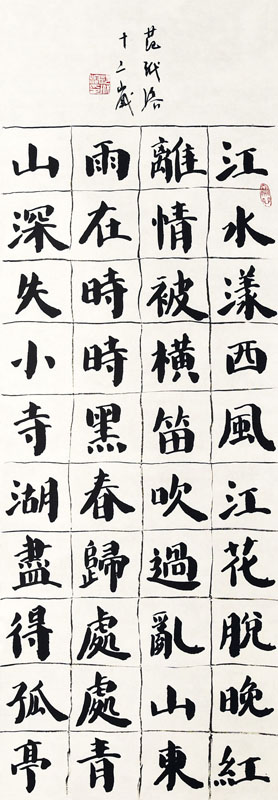 江水漾西風江花脫晚紅
離情被橫笛吹過亂山東
雨在時時黑春歸處處青
山深失小寺湖盡得孤亭
十二歲